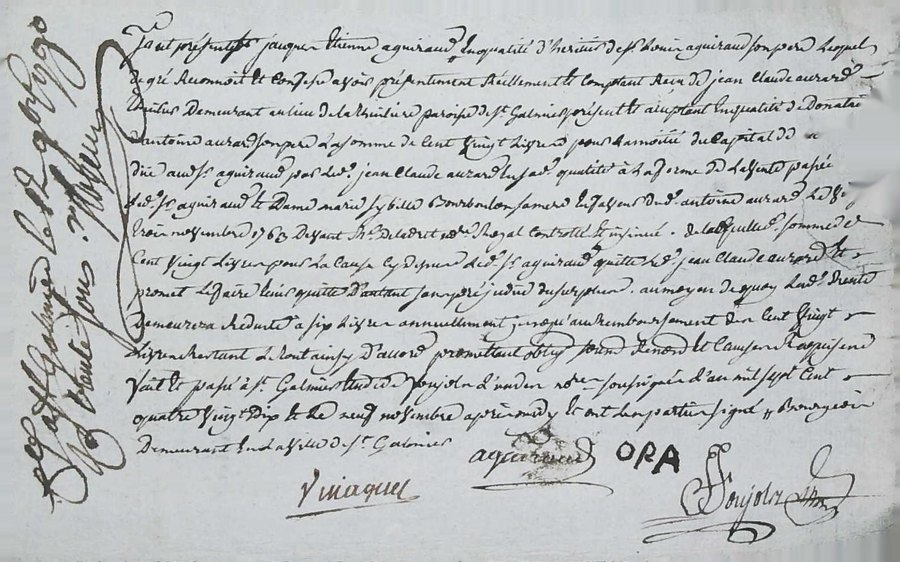 fut présent Sr jacques Etienne aguiraud En qualité d'heritier de Sr Louis aguiraud son pere Lequel
de gré Reconnoit et Confesse avoir présentement Réellement et Comptant Recu de jean Claude aurard
Demeurant au lieu de la thuiliere paroisse de St Galmier présent et aceptant En qualité de Donataire
d'antoine aurard son pere La somme de Cent Vingt Livres pour La moitié du Capital de
due audt Sr aguiraud par Led. jean Claude aurard En sad. qualité a La forme de La Vente passée
Led. Sr aguiraud et Dame marie sybille Bourboulon sa mere En faveur dud. antoine aurard Le
trois novembre 1763 Devant Me Royal Controllé et insinué. de laquelle somme de
Cent Vingt Livres pour La Cause Cy dessus Led. Sr aguiraud quitte Led. jean Claude aurard et
promet Le faire tenir quitte D'autant sans préjudice du surplus. au moyen de quoy Lad. Rente
Demeurera Reduite a six Livres annuellement jusqu'au Remboursement des Cent Vingt
Livres Restant Le tout ainsy D'accord promettant oblig. soum. Renond. et Clauses Requises
fait et passé à St Galmier Etude de Poujol L'un des nores soussignés L'an mil sept Cent
quatre Vingt Dix et Le neuf novembre après midy Et ont Les parties signé
Demeurant En La Ville de St Galmier
aguiraud ORA
Vinaguet
Poujol
à St Galmier le 12 9bre 1790